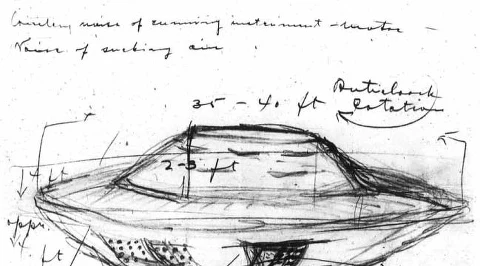 noise of running instrument - motor -
Noise of sucking air
35 - 40 ft
Anticlock
rotation
2-3 ft
4 ft
appr.
4 ft